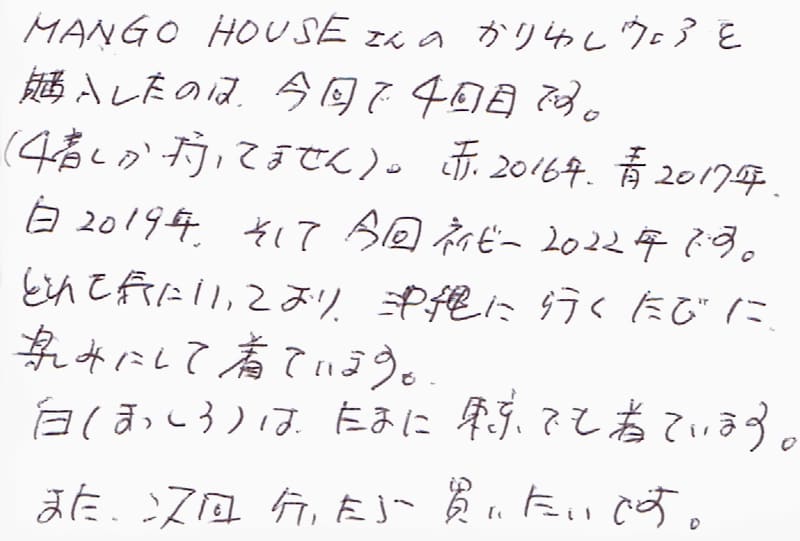 MANGO HOUSEさんの かりゆしウェアを
購入したのは、今回で4回目です。
(4着しか持ってません)。赤2016年、青2017年、
白2019年、そして今回ネイビー2022年です。
どれも気に入っており、沖縄に行くたびに
楽しみにして着ています。
白(まっしろ)は、たまに東京でも着ています。
また、次回行ったら買いたいです。